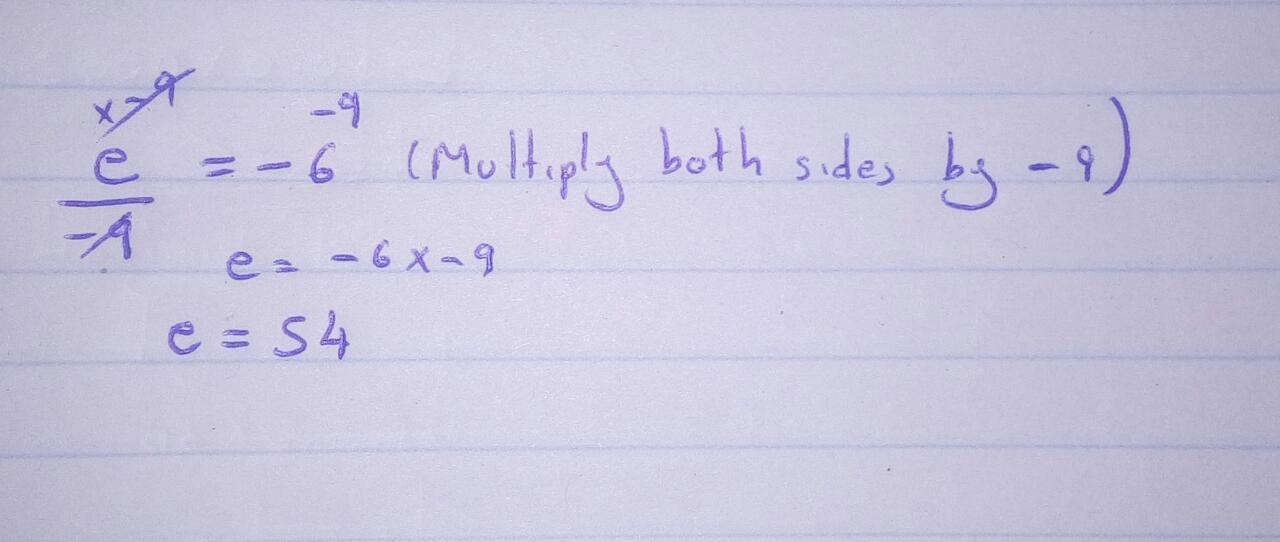 x-9 -9
e = -6 (Multiply both sides by -9)
-9
e = -6x-9
e = 54